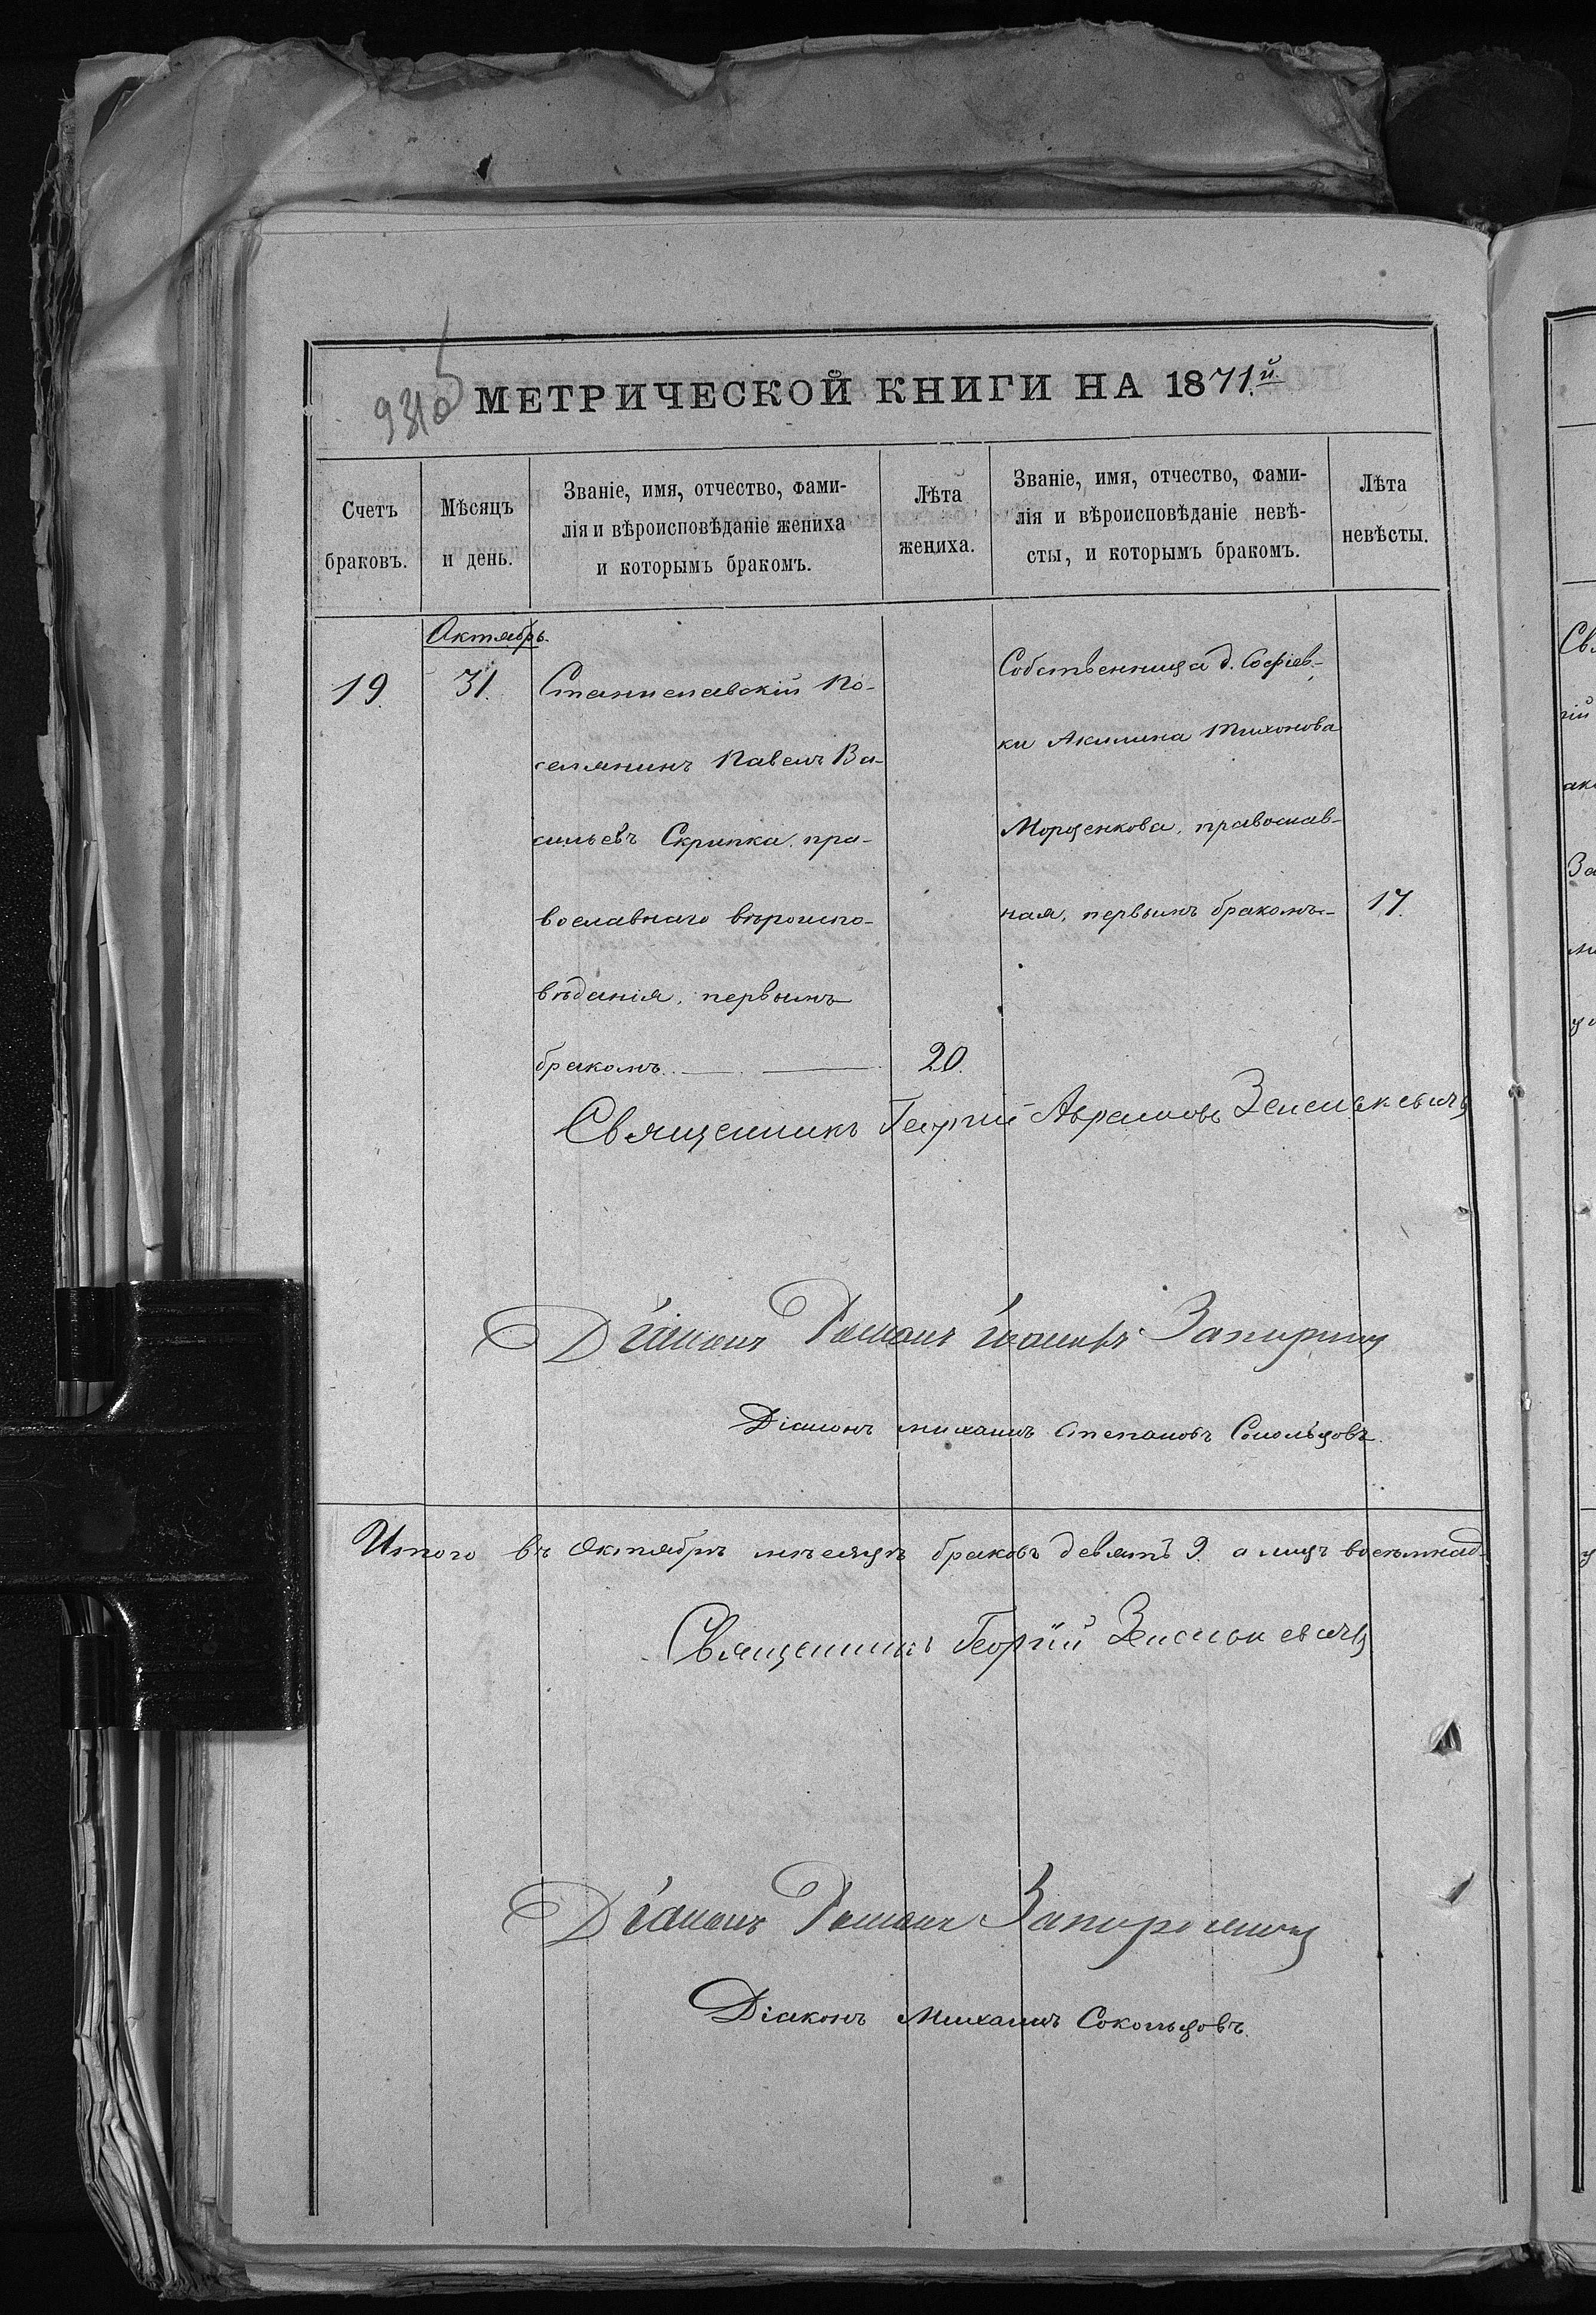 МЕТРИЧЕСКОЙ КНИГИ НА 1871.й
Счетъ браковъ.
Мѣсяцъ и день.
Званіе, имя, отчество, фами-
лія и вѣроисповѣданіе жениха
и которымъ бракомъ.
Лѣта жениха.
Званіе, имя, отчество, фами-
лія и вѣроисповѣданіе невѣ-
сты, и которымъ бракомъ.
Лѣта невѣсты.
Октябрь.
19. 31.
Станиславскій По-
селянинъ Павелъ Ва-
сильевъ Скрипка, пра-
вославнаго вѣроиспо-
вѣданія, первымъ
бракомъ. 20.
Собственница д. Софіев-
ки Акилина Тихонова
Морценкова, православ-
ная, первымъ бракомъ 17.
Священникъ Георгій Авраамовъ Зенькевичъ
Діаконъ Романъ
Діаконъ Михаилъ Степановъ Сокольцовъ.
Итого въ Октябрѣ мѣсяцѣ браковъ девять 9. а лицъ восемнад-
Священникъ Георгій
Діаконъ Романъ
Діаконъ Михаилъ Сокольцовъ.